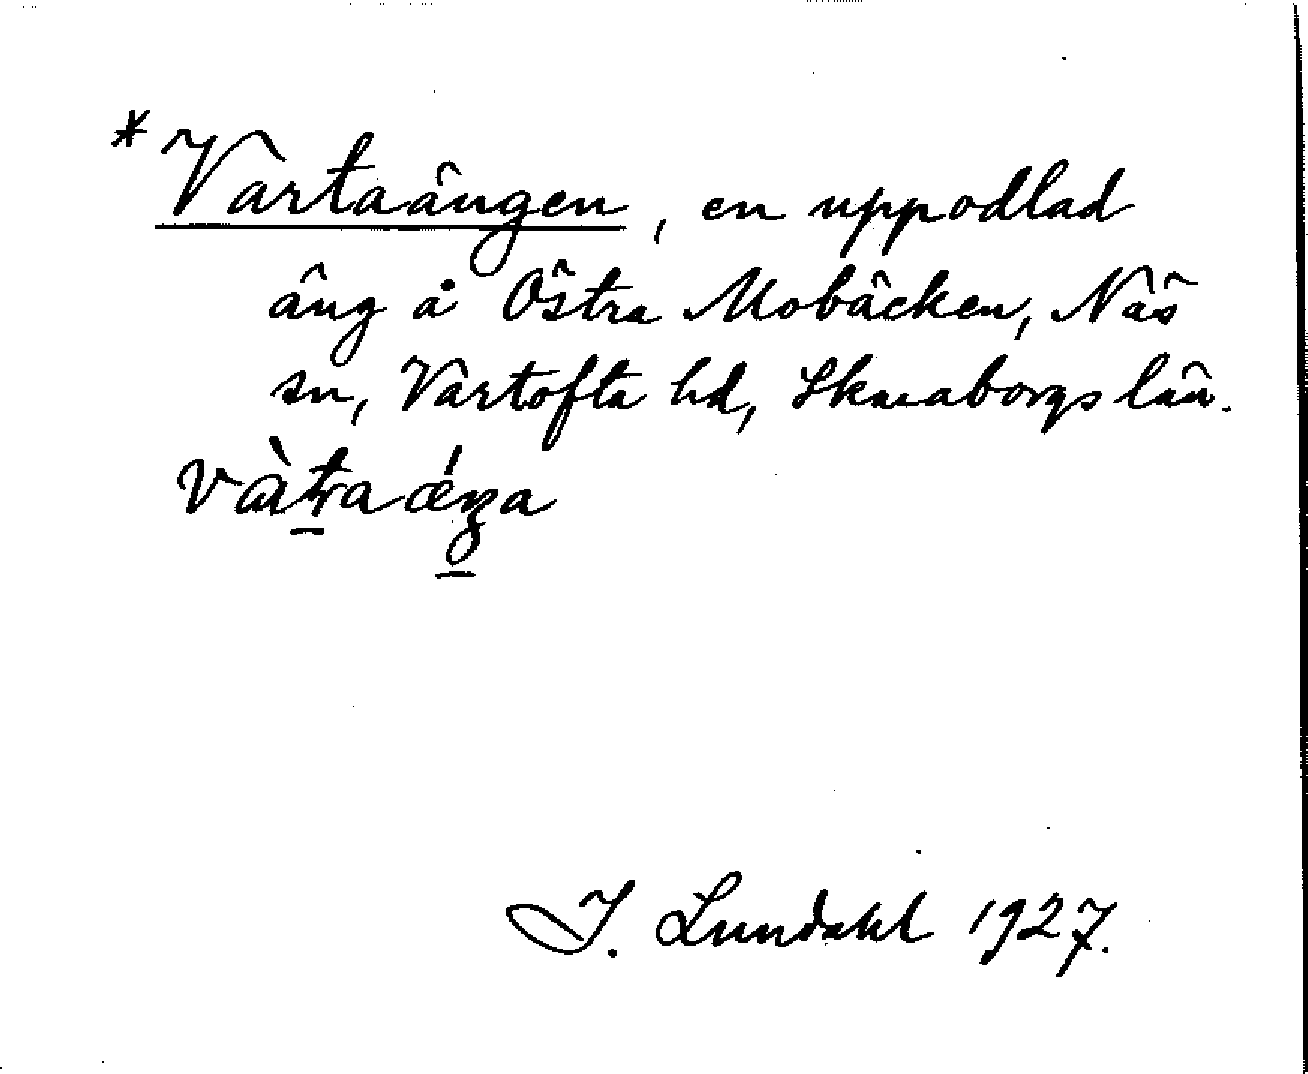 *Vartaängen, en uppodlad
äng å Östra Mobäcken, Näs
sn, Vartofta hd, Skaraborgs län.
I. Lundahl 1927.